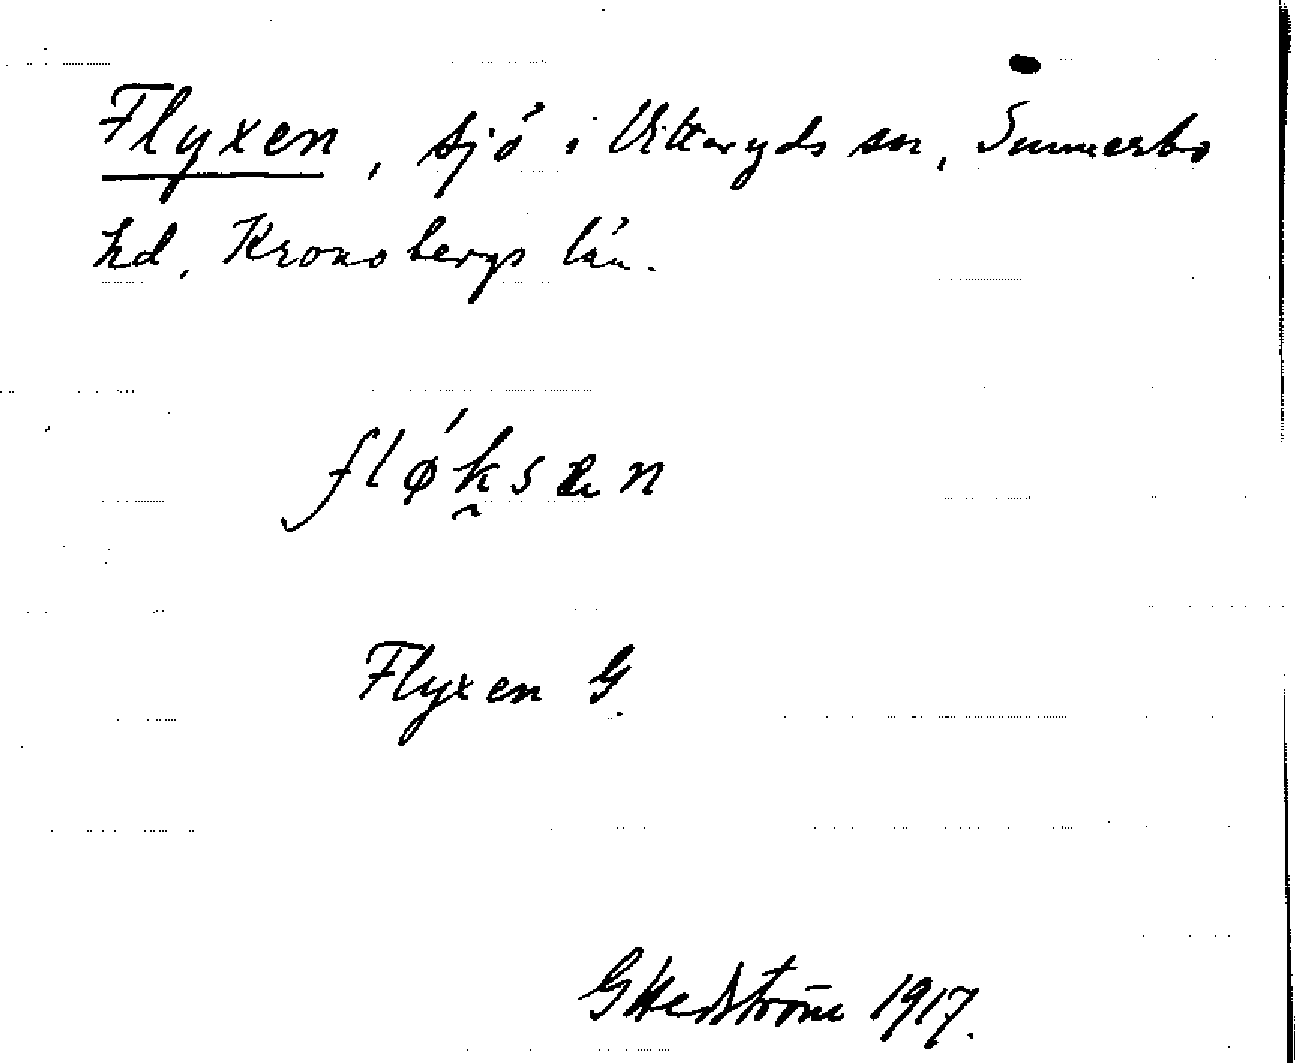 Flyxen, sjö i Vitteryds sn, Sunnerbo
hd, Kronobergs län.
fløksen
Flyxen G.
G Hedström 1917.